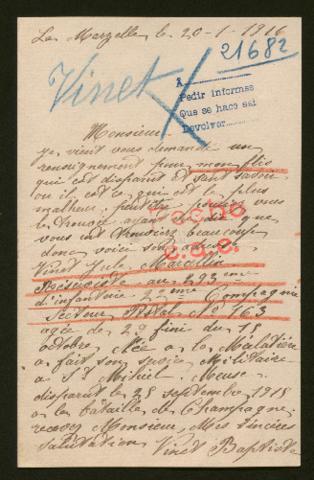 La Marzelle le 20-1-1916
21682
Vinet
À
Pedir informes
Que se hace saber
Devolver
Monsieur
je vient vous demandé un
renseignement pour mon fils
qui est disparut et sant savoir
ou il est ce qui est le plus
malheur, peut être pouriez vous
le trouvé ayant que
vous ent trouviez beaucoup
donc voici son adresse
Vinet Jule Marcellin
au 293 me
d'infanterie 2 eme Compagnie
Secteur Postal No 163
agée de 29 fini du 15
octobre. Née a la Maladière
a fait son service Militaire
a St Mihiel. Meuse.
disparut le 25 septembre 1915
a la batailles de Champagne.
recevez Monsieur, Mes Sincères
salutations Vinet Baptiste